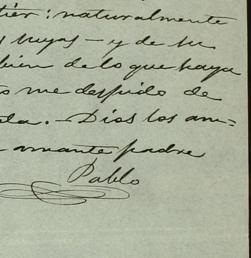 tier: naturalmente
s suyas — y de su
bien de lo que haya
o me despido de
la. — Dios los am=
amante padre
Pablo